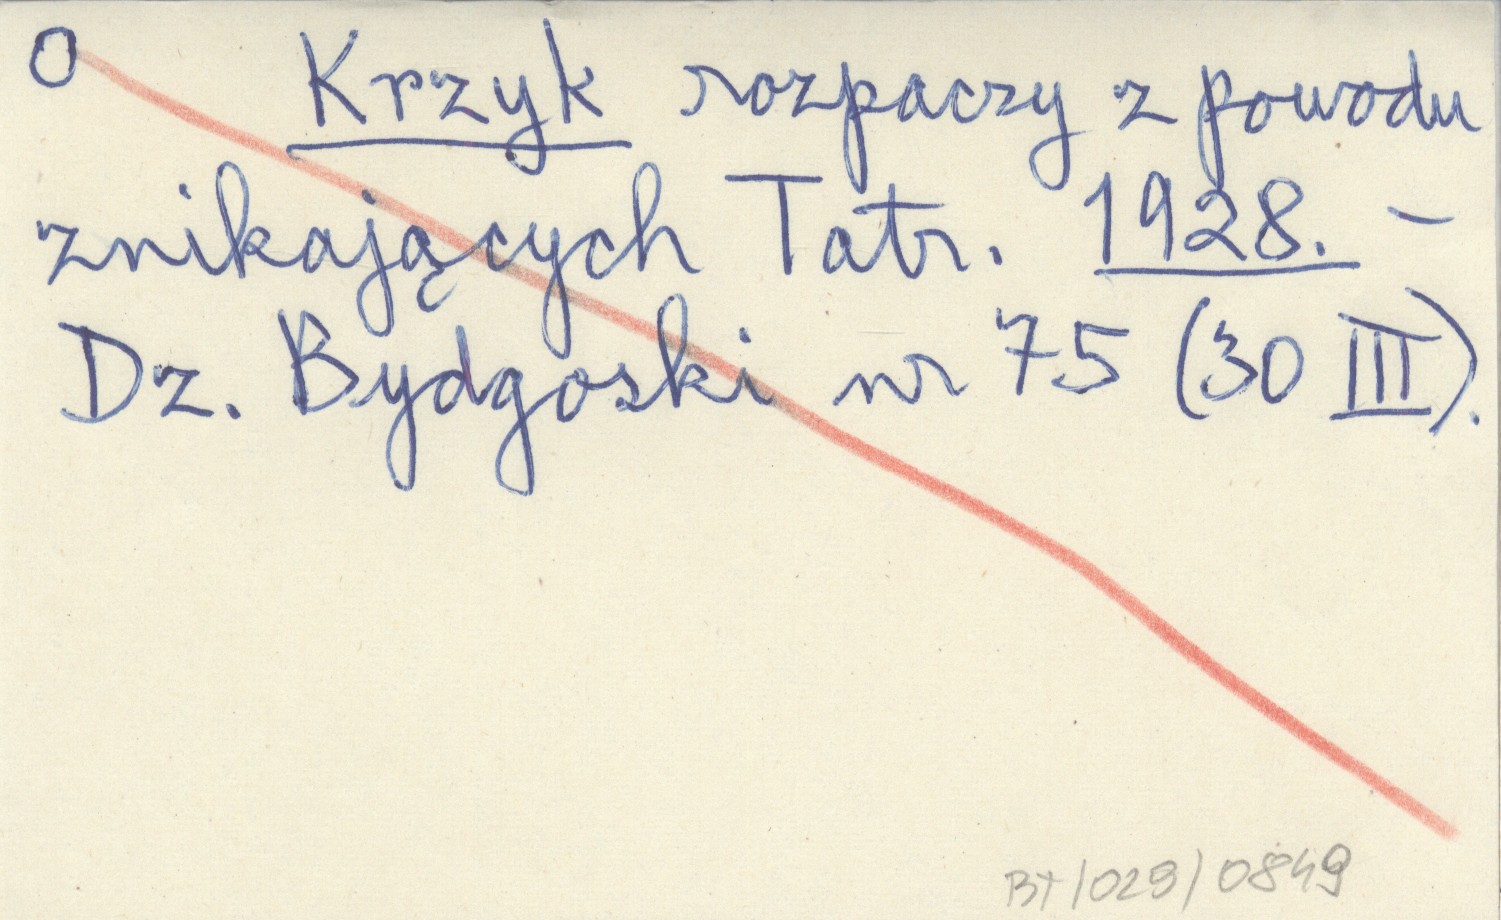 O Krzyk rozpaczy z powodu
znikających Tatr. 1928. –
Dz. Bydgoski nr 75 (30 III).
BT/029/0849